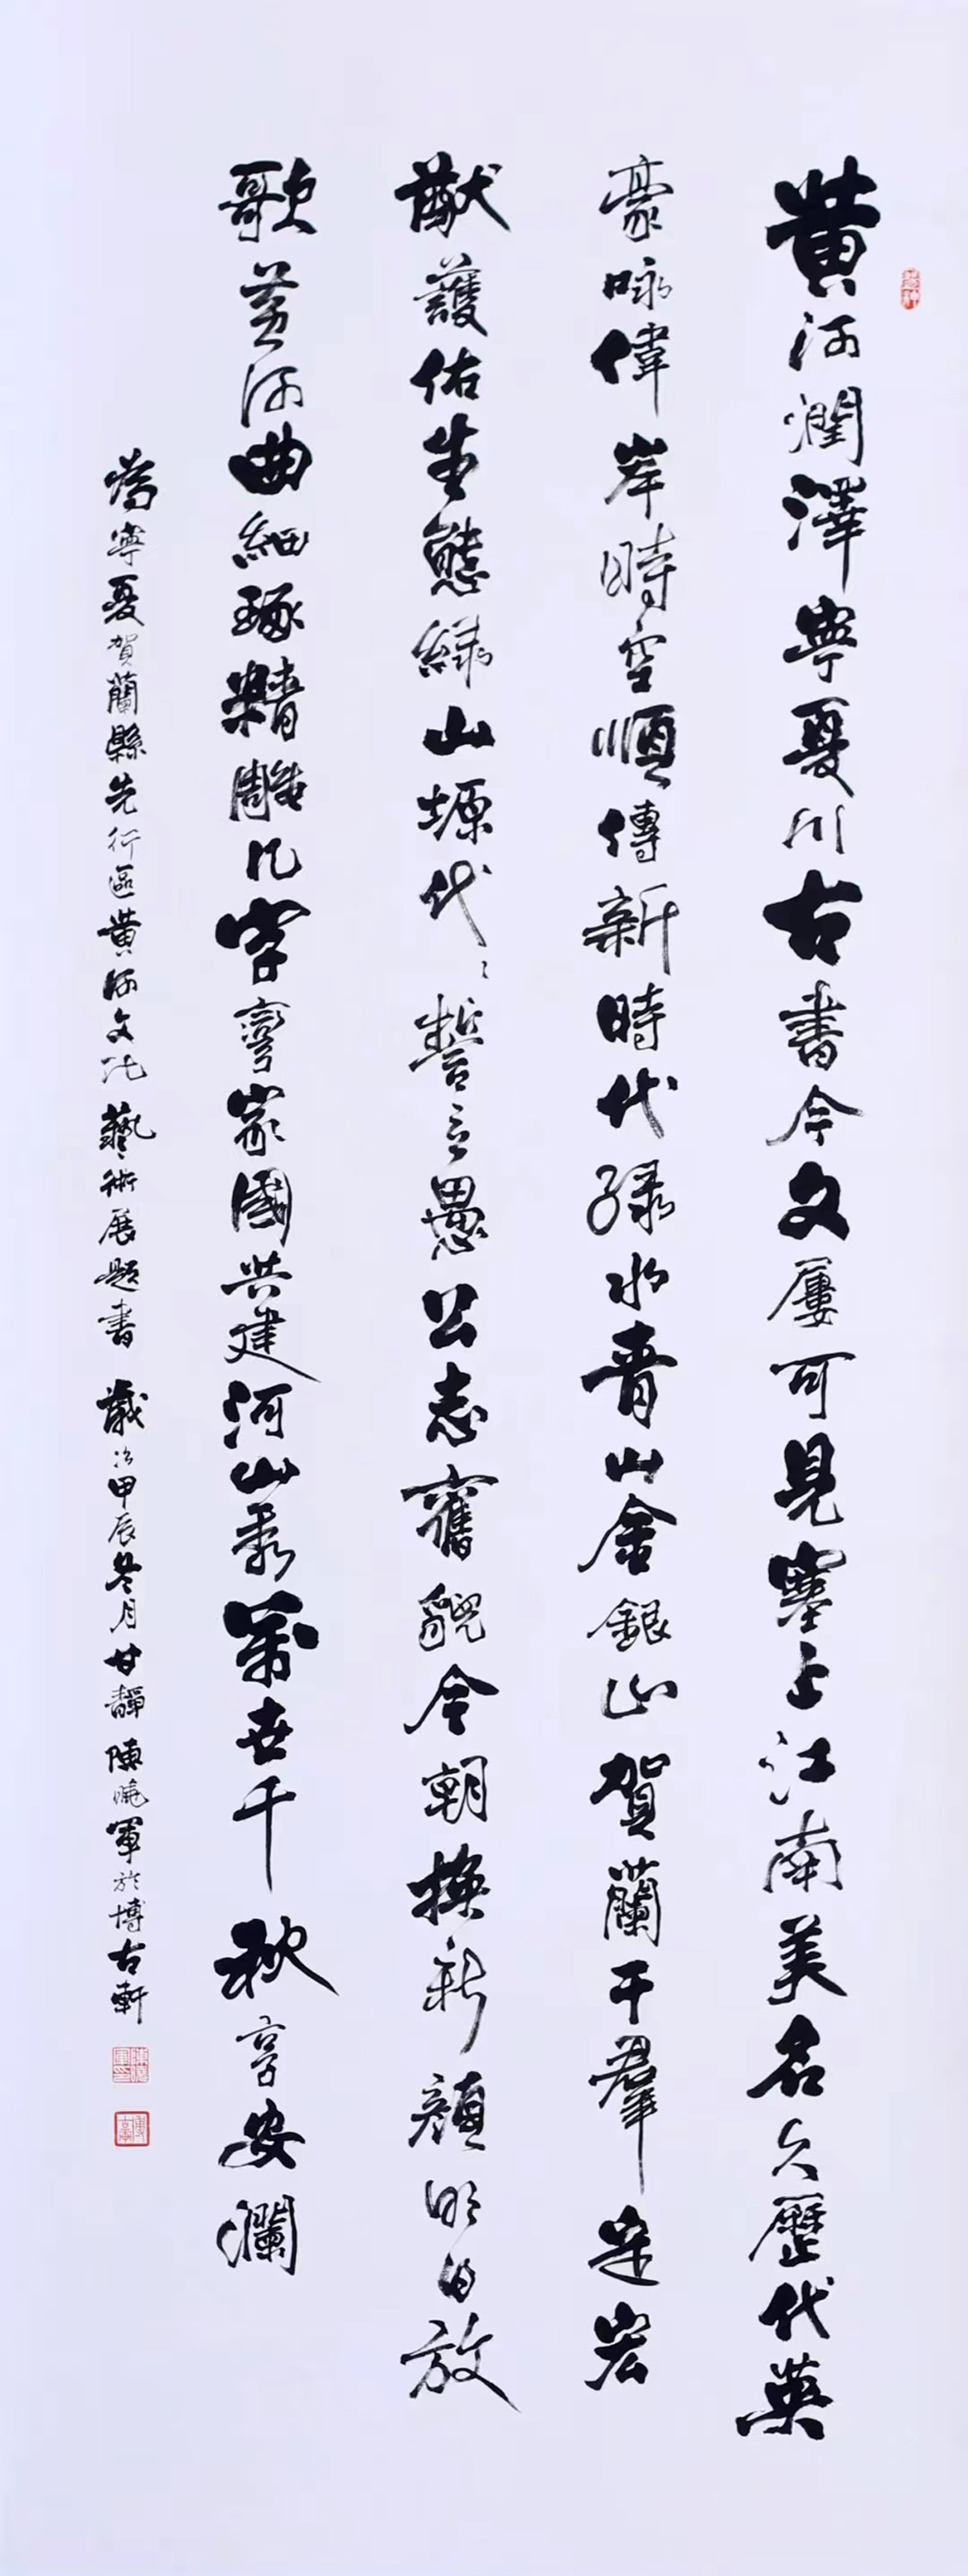 黄河潤澤寧夏川古書今文屢可見塞上江南美名久歷代英
豪咏偉岸時空順傳新時代緑水青山金銀山賀蘭干群定宏
猷護佑生態緑山塬代〻誓言愚公志舊貌今朝换新顔明日放
歌黄河曲細琢精雕几字彎家國共建河山秀萬世千秋享安瀾
為寧夏賀蘭縣先行區黄河文化藝術展題書 歲次甲辰冬月甘肅陳曉軍於博古軒